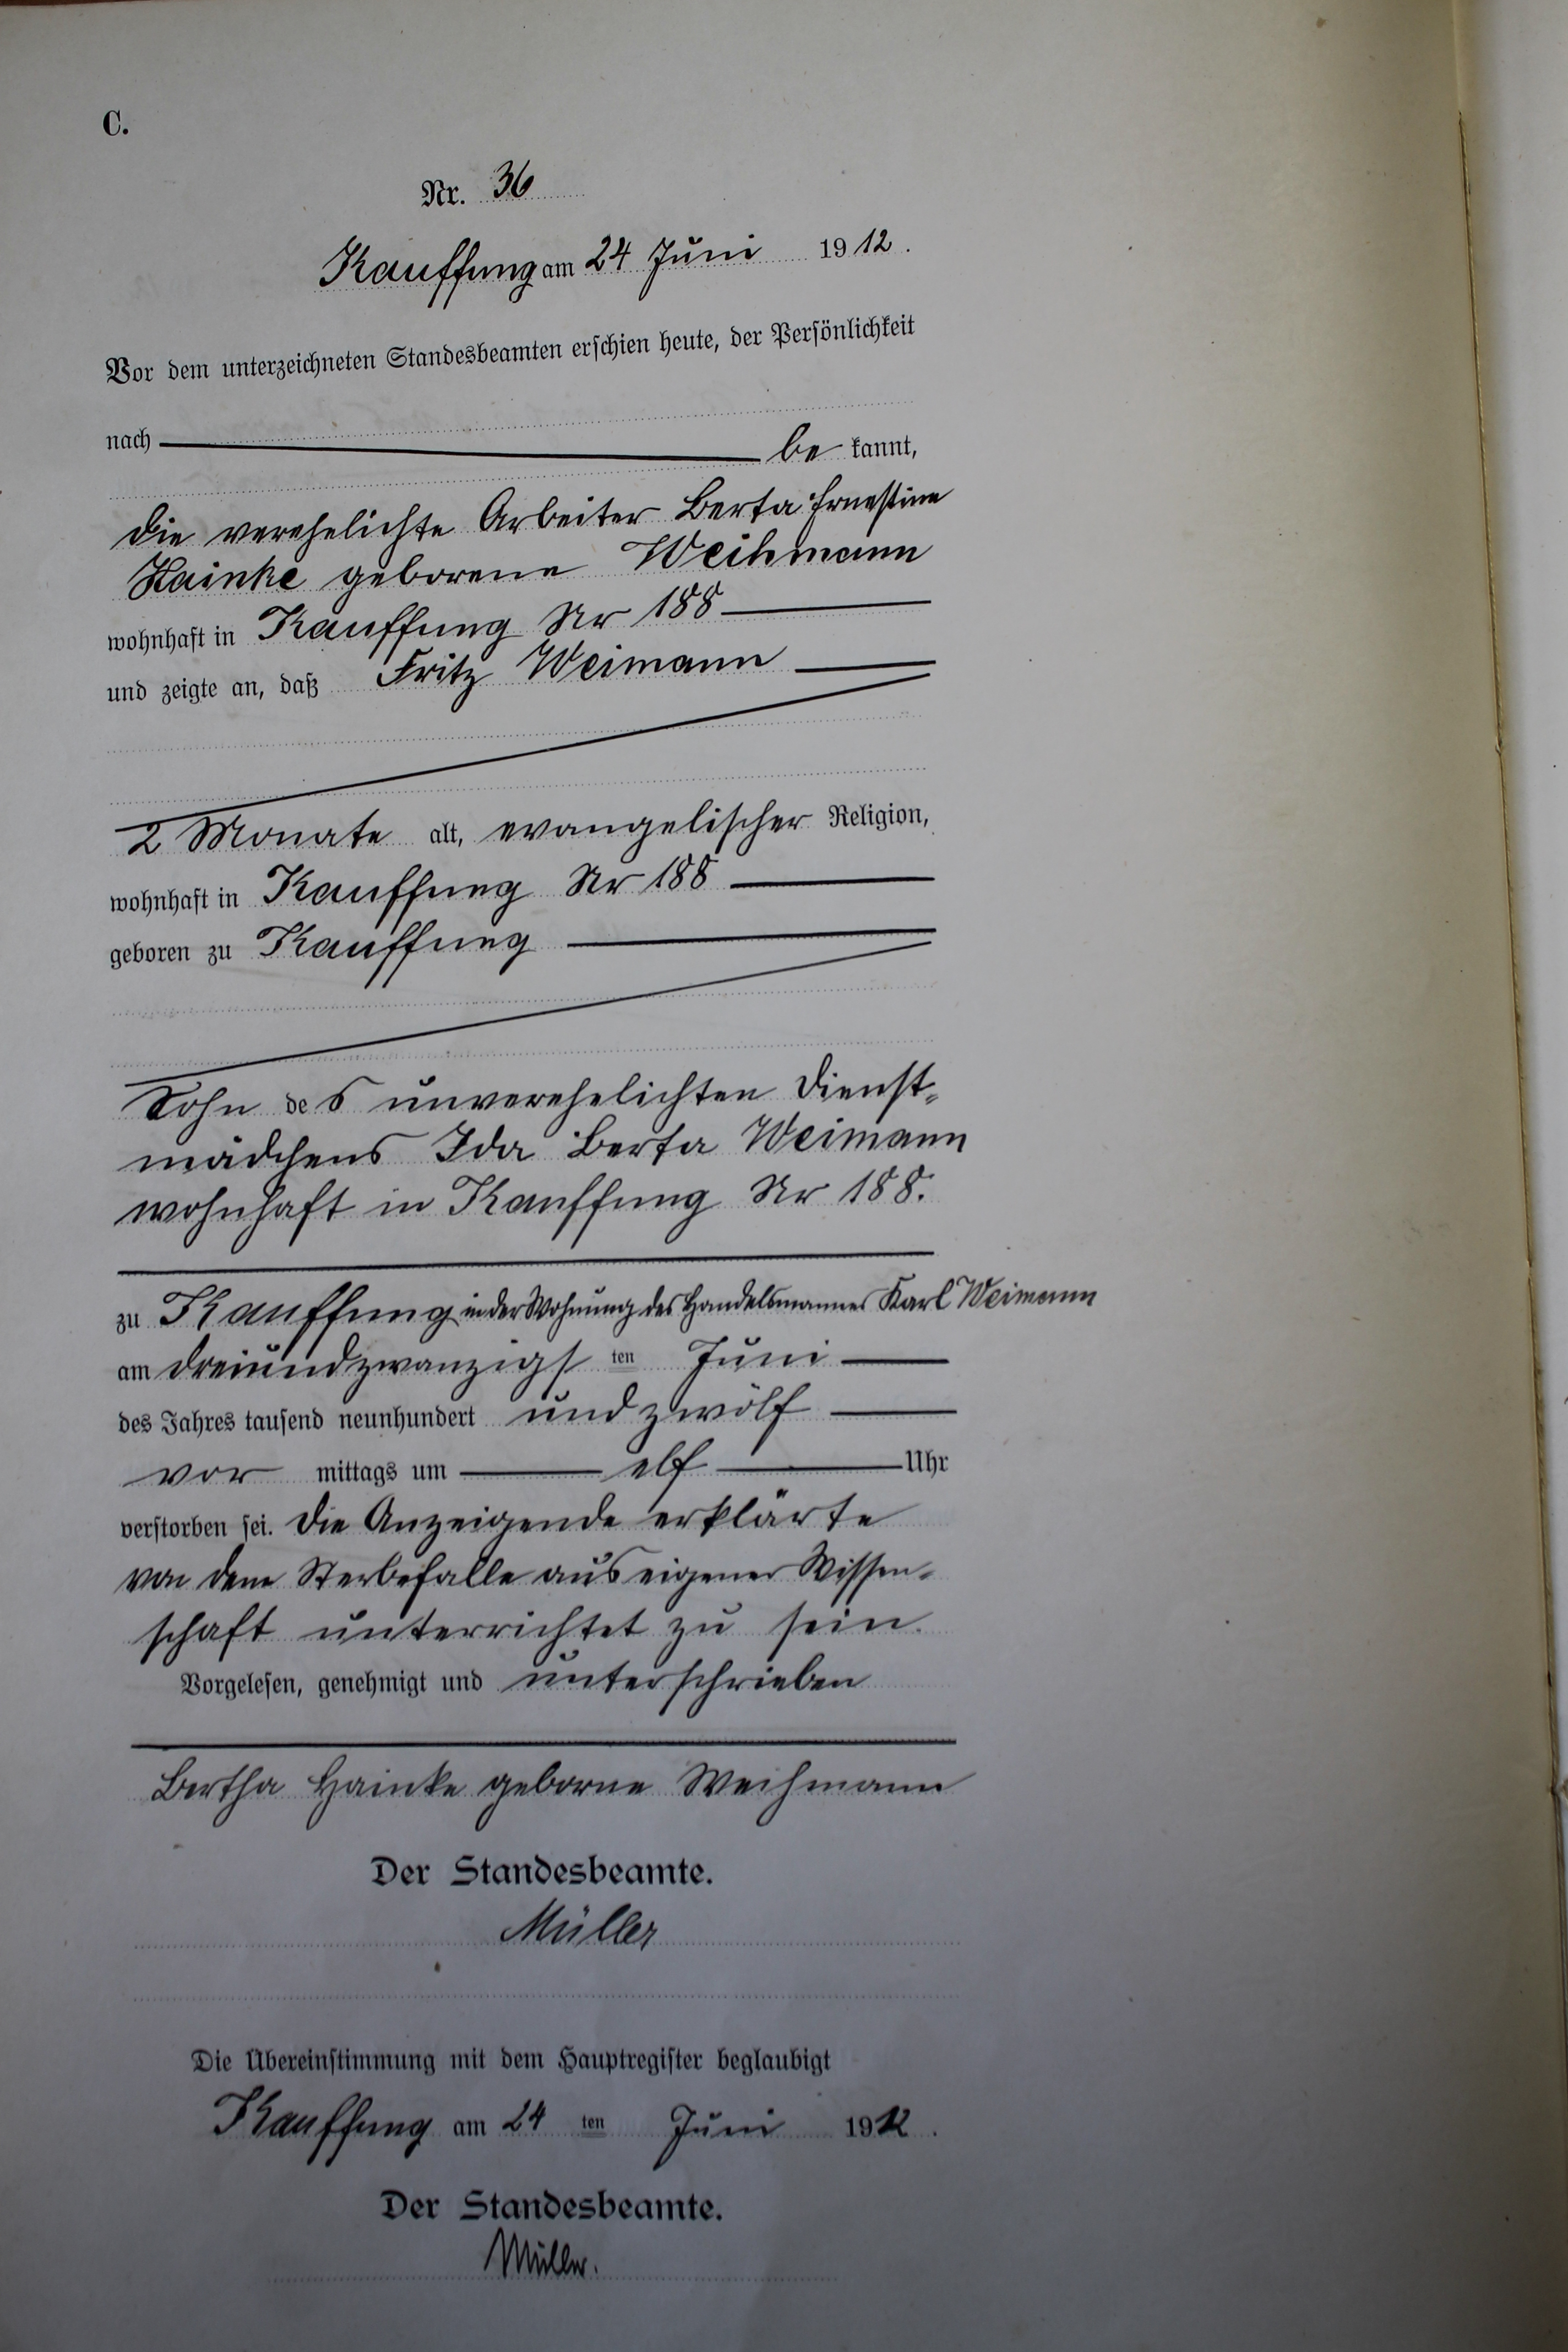 C.
Nr. 36
Kauffung am 24 Juni 1912.
Vor dem unterzeichneten Standesbeamten erschien heute, der Persönlichkeit
nach be kannt,
die verehelichte Arbeiter Berta Ernestine
Hainke geborene Weihmann
wohnhaft in Kauffung Nr 188
und zeigte an, daß Fritz Weimann
2 Monate alt, evangelischer Religion,
wohnhaft in Kauffung Nr 188
geboren zu Kauffung
Sohn des unverehelichten Dienst-
mädchens Ida Berta Weimann
wohnhaft in Kauffung Nr 188.
zu Kauffung in der Wohnung des Handelsmannes Karl Weimann
am dreiundzwanzigsten Juni
des Jahres tausend neunhundert und zwölf
vor mittags um elf Uhr
verstorben sei. Die Anzeigende erklärte
von dem Sterbefalle aus eigener Wissen-
schaft unterrichtet zu sein.
Vorgelesen, genehmigt und unterschrieben
Bertha Hainke geborne Weihmann
Der Standesbeamte.
Müller
Die Übereinstimmung mit dem Hauptregister beglaubigt
Kauffung am 24 ten Juni 1912.
Der Standesbeamte.
Müller.